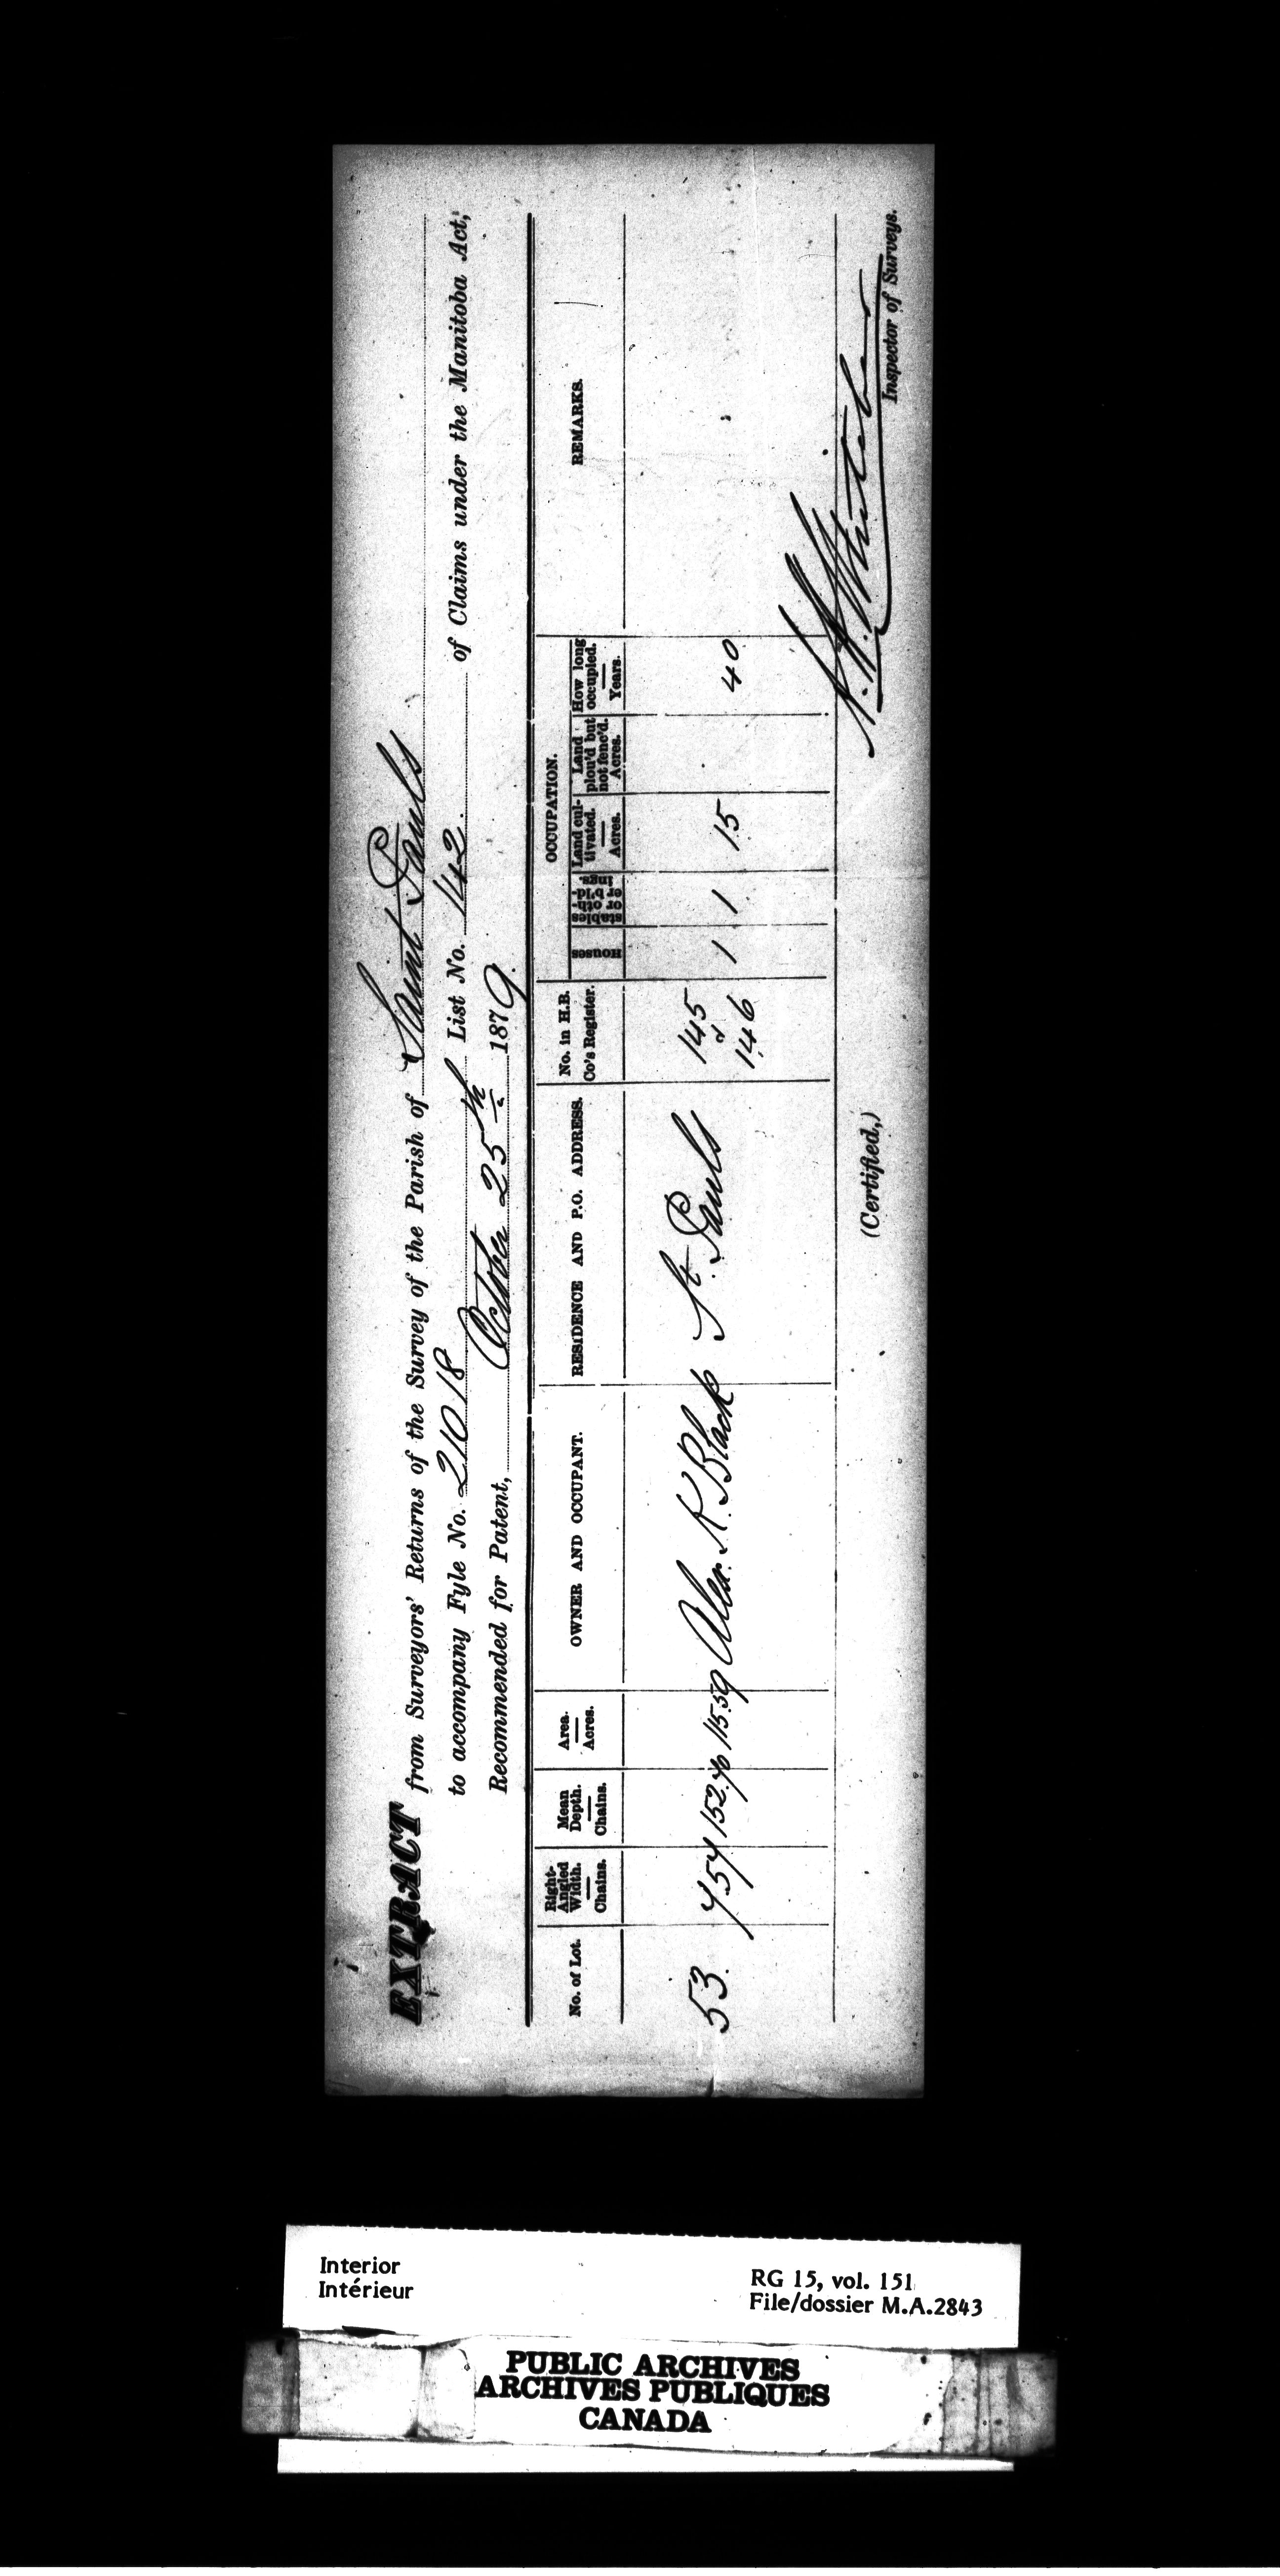 EXTRACT from Surveyors' Returns of the Survey of the Parish of Saint Pauls
to accompany Fyle No. 21018 List No. 142 of Claims under the Manitoba Act,
Recommended for Patent, October 25th 1879.
No. of Lot.
Right-Angled Width. — Chains.
Mean Depth. — Chains.
Area. — Acres.
OWNER AND OCCUPANT.
RESIDENCE AND P.O. ADDRESS.
No. in H.B. Co's Register.
OCCUPATION.
Houses
stables or other b'ld-ings.
Land cul-tivated. — Acres.
Land plou'd but not fenc'd. Acres.
How long occupied. — Years.
REMARKS.
53. 7.57 152.70 115.59 Alex. K. Black St. Pauls 145 & 146 1 1 15 40
(Certified,)
Inspector of Surveys.
Interior
Intérieur
RG 15, vol. 151
File/dossier M.A.2843
PUBLIC ARCHIVES
ARCHIVES PUBLIQUES
CANADA